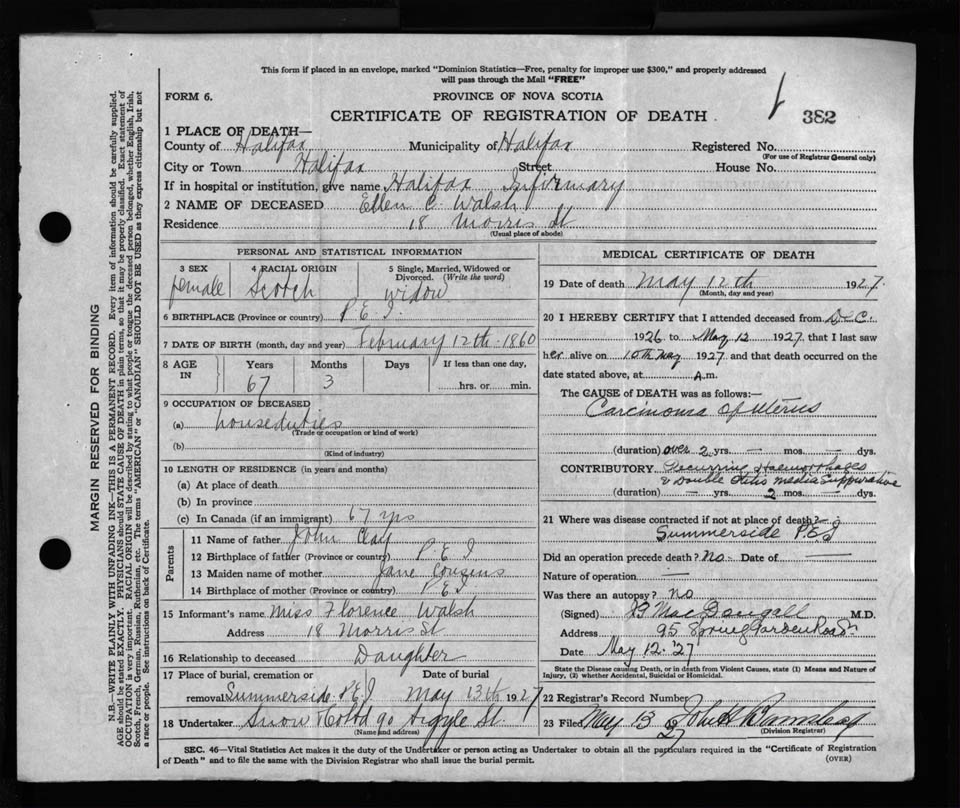 This form if placed in an envelope, marked "Dominion Statistics—Free, penalty for improper use $300," and properly addressed
will pass through the Mail "FREE"
FORM 6.
PROVINCE OF NOVA SCOTIA
CERTIFICATE OF REGISTRATION OF DEATH.
382
MARGIN RESERVED FOR BINDING
N.B.—WRITE PLAINLY WITH UNFADING INK—THIS IS A PERMANENT RECORD. Every item of information should be carefully supplied.
AGE should be stated EXACTLY. PHYSICIANS should STATE CAUSE OF DEATH in plain terms, so that it may be properly classified. Exact statement of
OCCUPATION is very important. RACIAL ORIGIN will be described by stating to what people or tongue the deceased person belonged, whether English, Irish,
Scotch, French, German, Russian, Ruthenian, etc. The terms "AMERICAN" or "CANADIAN" SHOULD NOT BE USED as they express citizenship but not
a race or people. See instructions on back of Certificate.
1 PLACE OF DEATH—
County of Halifax Municipality of Halifax Registered No.
(For use of Registrar General only)
City or Town Halifax Street House No.
If in hospital or institution, give name Halifax Infirmary
2 NAME OF DECEASED Ellen C. Walsh
Residence 18 Morris St
(Usual place of abode)
PERSONAL AND STATISTICAL INFORMATION
3 SEX 4 RACIAL ORIGIN 5 Single, Married, Widowed or
Divorced. (Write the word)
female Scotch widow
6 BIRTHPLACE (Province or country) P.E.I.
7 DATE OF BIRTH (month, day and year) February 12th-1860
8 AGE IN Years Months Days If less than one day,
67 3 hrs. or min.
9 OCCUPATION OF DECEASED
(a) houseduties
(Trade or occupation or kind of work)
(b)
(Kind of industry)
10 LENGTH OF RESIDENCE (in years and months)
(a) At place of death
(b) In province
(c) In Canada (if an immigrant) 67 yrs
Parents
11 Name of father John Clay
12 Birthplace of father (Province or country) P.E.I
13 Maiden name of mother Jane Cousins
14 Birthplace of mother (Province or country) P.E.I
15 Informant's name Miss Florence Walsh
Address 18 Morris St
16 Relationship to deceased Daughter
17 Place of burial, cremation or Date of burial
removal Summerside P.E.I May 13th 1927
18 Undertaker Snow & Co Ltd 90 Argyle St
(Name and address)
MEDICAL CERTIFICATE OF DEATH
19 Date of death May 12th 1927.
(Month, day and year)
20 I HEREBY CERTIFY that I attended deceased from Dec.
1926 to May 12 1927, that I last saw
her alive on 10th May 1927 and that death occurred on the
date stated above, at A.m.
The CAUSE of DEATH was as follows:—
Carcinoma of Uterus
(duration) over 2 yrs. — mos. — dys.
CONTRIBUTORY Recurring Haemorrhages
& Double Otitis Media Suppurative
(duration) — yrs. 2 mos. — dys.
21 Where was disease contracted if not at place of death?
Summerside P.E.I
Did an operation precede death? No. Date of —
Nature of operation —
Was there an autopsy? no
(Signed) MacDougall M.D.
Address 95 Spring Garden Road
Date May 12. '27
State the Disease causing Death, or in death from Violent Causes, state (1) Means and Nature of
Injury, (2) whether Accidental, Suicidal or Homicidal.
22 Registrar's Record Number
23 Filed May 13 27 John
(Division Registrar)
SEC. 46—Vital Statistics Act makes it the duty of the Undertaker or person acting as Undertaker to obtain all the particulars required in the "Certificate of Registration
of Death" and to file the same with the Division Registrar who shall issue the burial permit.
(OVER)